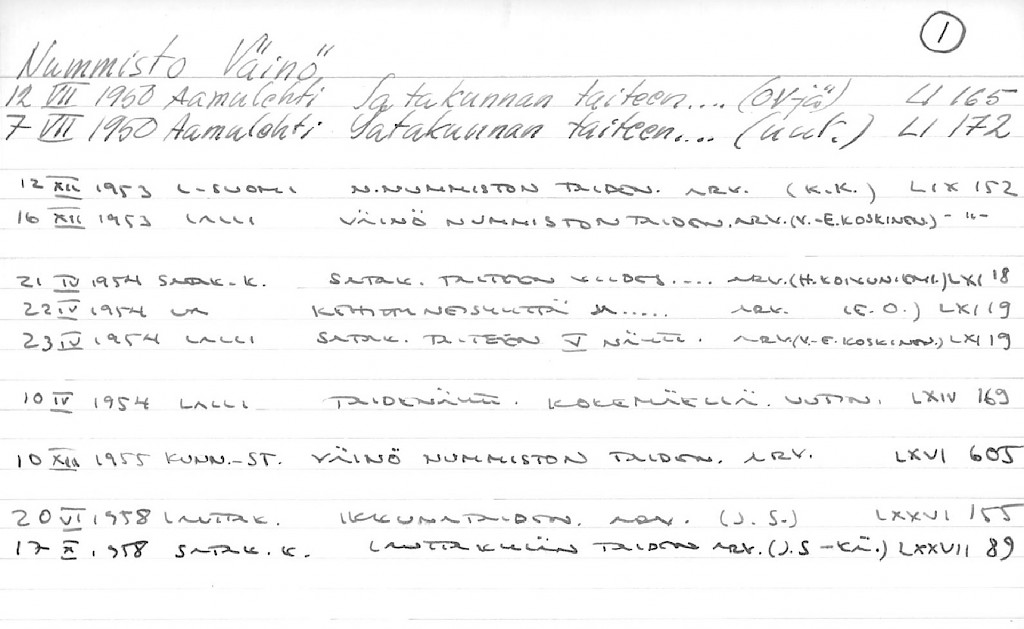 1
Nummisto Väinö
12 VII 1950 Aamulehti Satakunnan taiteen.... (OV-jä) LI 165
7 VII 1950 Aamulehti Satakunnan taiteen.... (uut.) LI 172
12 XII 1953 L-SUOMI N.NUMMISTON TAIDEN. ARV. (K.K.) LIX 152
16 XII 1953 LALLI VÄINÖ NUMMISTON TAIDEN. ARV. (V.-E.KOSKINEN.) -"-
21 IV 1954 SATAK.K. SATAK. TAITEEN VIIDES.... ARV. (H.KOIVUNIEMI.) LXI 18
22 IV 1954 UA SA..... ARV. (E.O.) LXI 19
23 IV 1954 LALLI SATAK. TAITEEN V NÄYTT. ARV (V.-E.KOSKINEN.) LXI 19
10 IV 1954 LALLI TAIDENÄYTT. KOKEMÄELLÄ. UUTIN. LXIV 169
10 XII 1955 KUNN.-ST. VÄINÖ NUMMISTON TAIDEN. ARV. LXVI 605
20 VI 1958 LAUTTAK. IKKUNATAIDEN. ARV. (J.S.) LXXVI 155
17 X. 1958 SATAK.K. LAUTTAKYLÄN TAIDEN ARV. (J.S-KÄ.) LXXVII 89